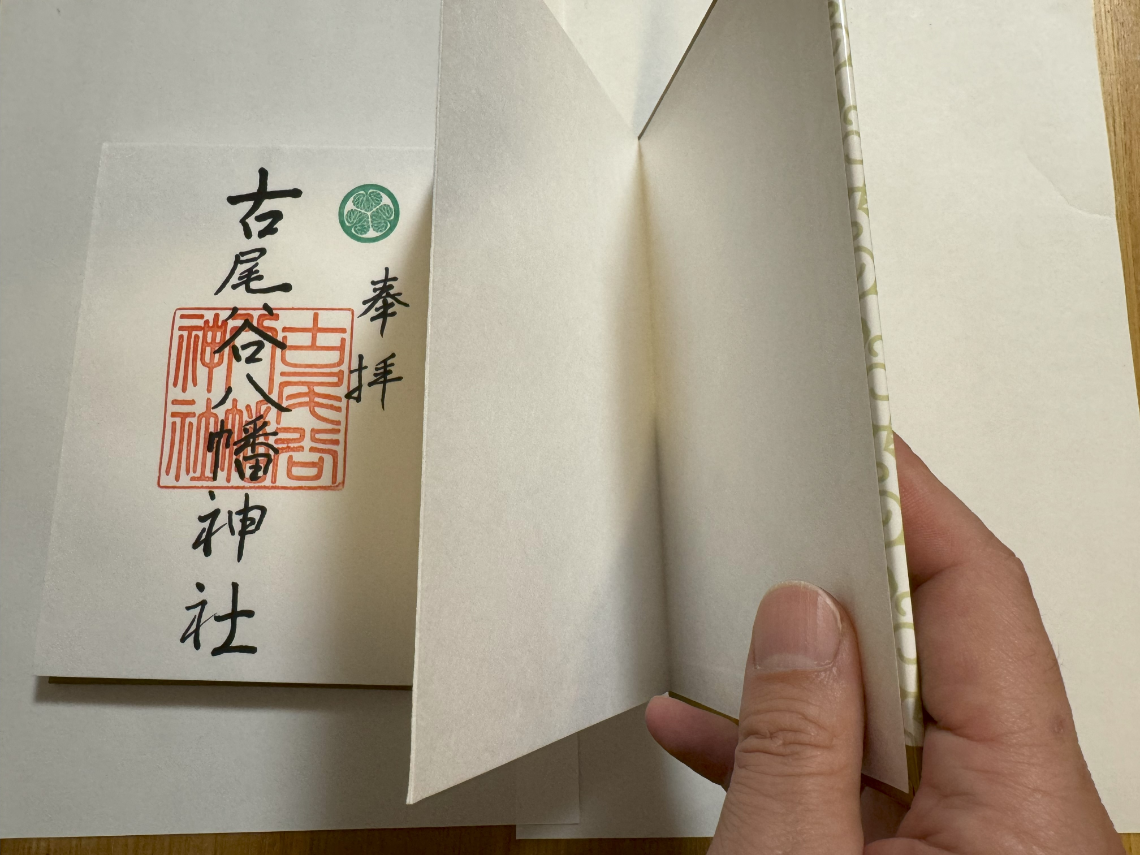 奉拝
古尾谷八幡神社
古尾谷八幡神社